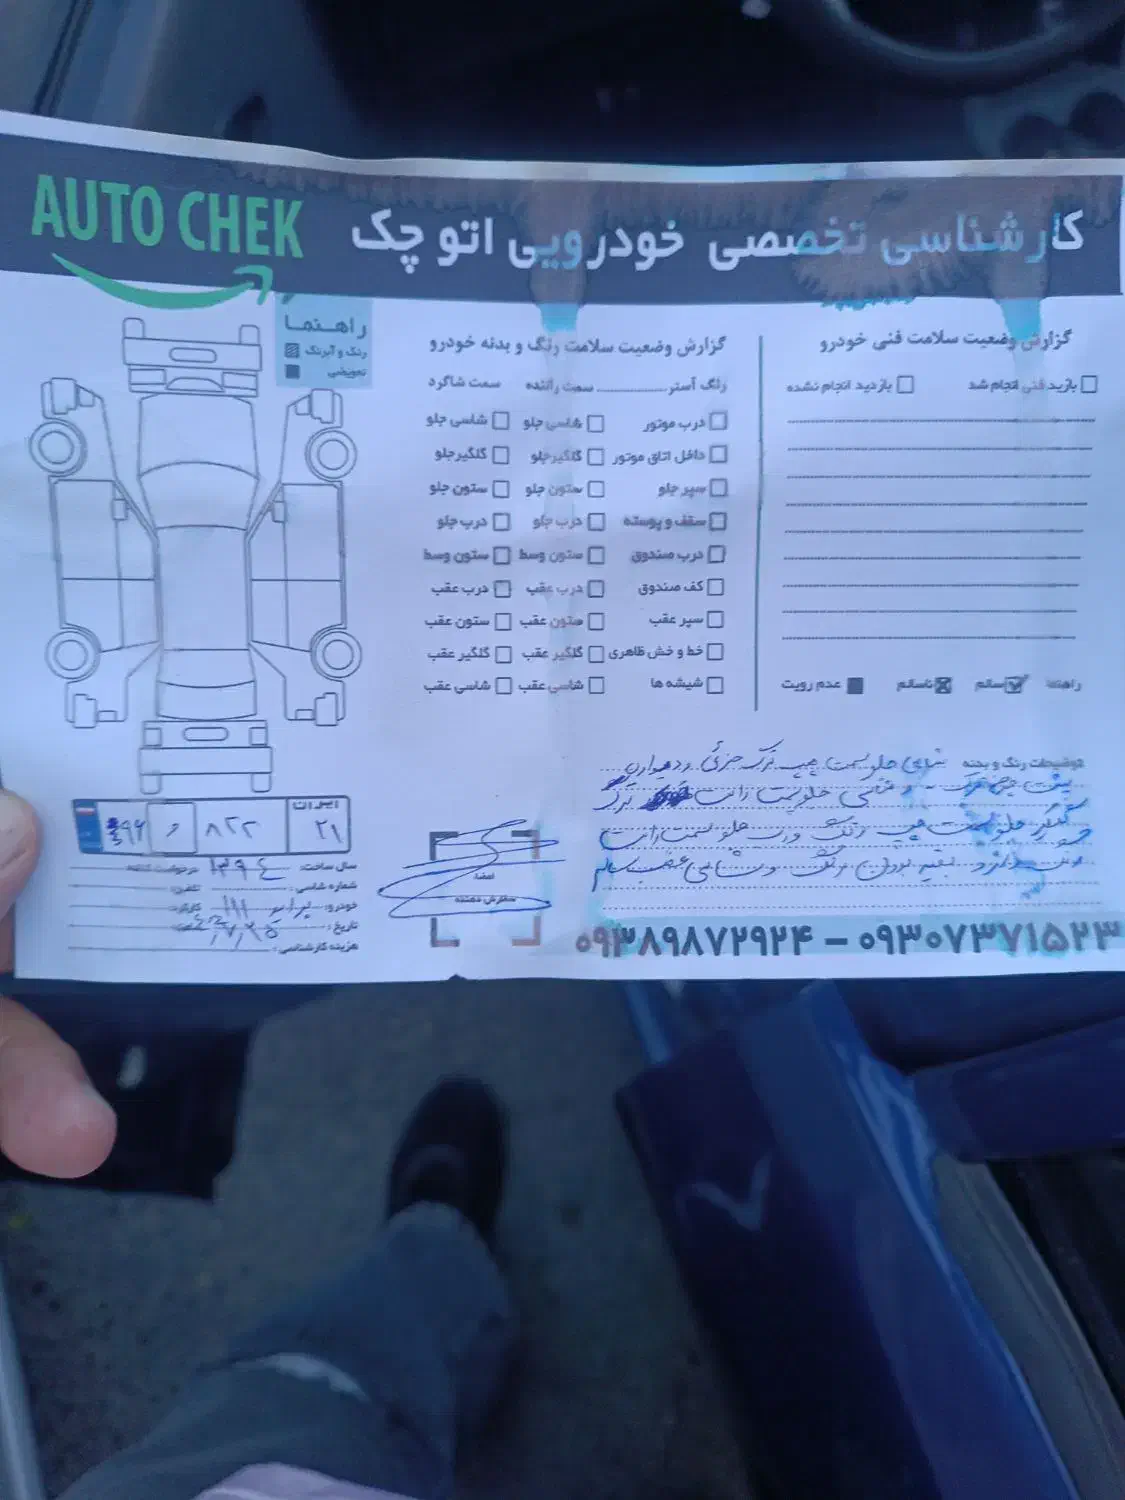 AUTO CHEK
کارشناسی تخصصی خودرویی اتو چک
گزارش وضعیت سلامت فنی خودرو
بازدید فنی انجام شد
بازدید انجام نشده
راهنما سالم ناسالم عدم رویت
گزارش وضعیت سلامت رنگ و بدنه خودرو
رنگ آستر سمت راننده سمت شاگرد
درب موتور شاسی جلو شاسی جلو
داخل اتاق موتور گلگیر جلو گلگیر جلو
سپر جلو ستون جلو ستون جلو
سقف و پوسته درب جلو درب جلو
درب صندوق ستون وسط ستون وسط
کف صندوق درب عقب درب عقب
سپر عقب ستون عقب ستون عقب
خط و خش ظاهری گلگیر عقب گلگیر عقب
شیشه ها شاسی عقب شاسی عقب
راهنما
رنگ و آبرنگ
تعویضی
توضیحات رنگ و بدنه جلو سمت چپ ترک جزئی و دیواره
شاسی جلو سمت راست ترک
گلگیر جلو سمت چپ رنگ و درب جلو سمت راست
بقیه بدون رنگ و شاسی عقب سالم
۰۹۳۸۹۸۷۲۹۲۴ - ۰۹۳۰۷۳۷۱۵۲۳
ایران
۲۱
۸۲۲
و
۹۶
سال ساخت: ۱۳۹۴ درخواست کننده
شماره شاسی: تلفن:
خودرو: پراید ۱۱۱ کارکرد:
تاریخ:
هزینه کارشناسی:
امضا
سفارش دهنده